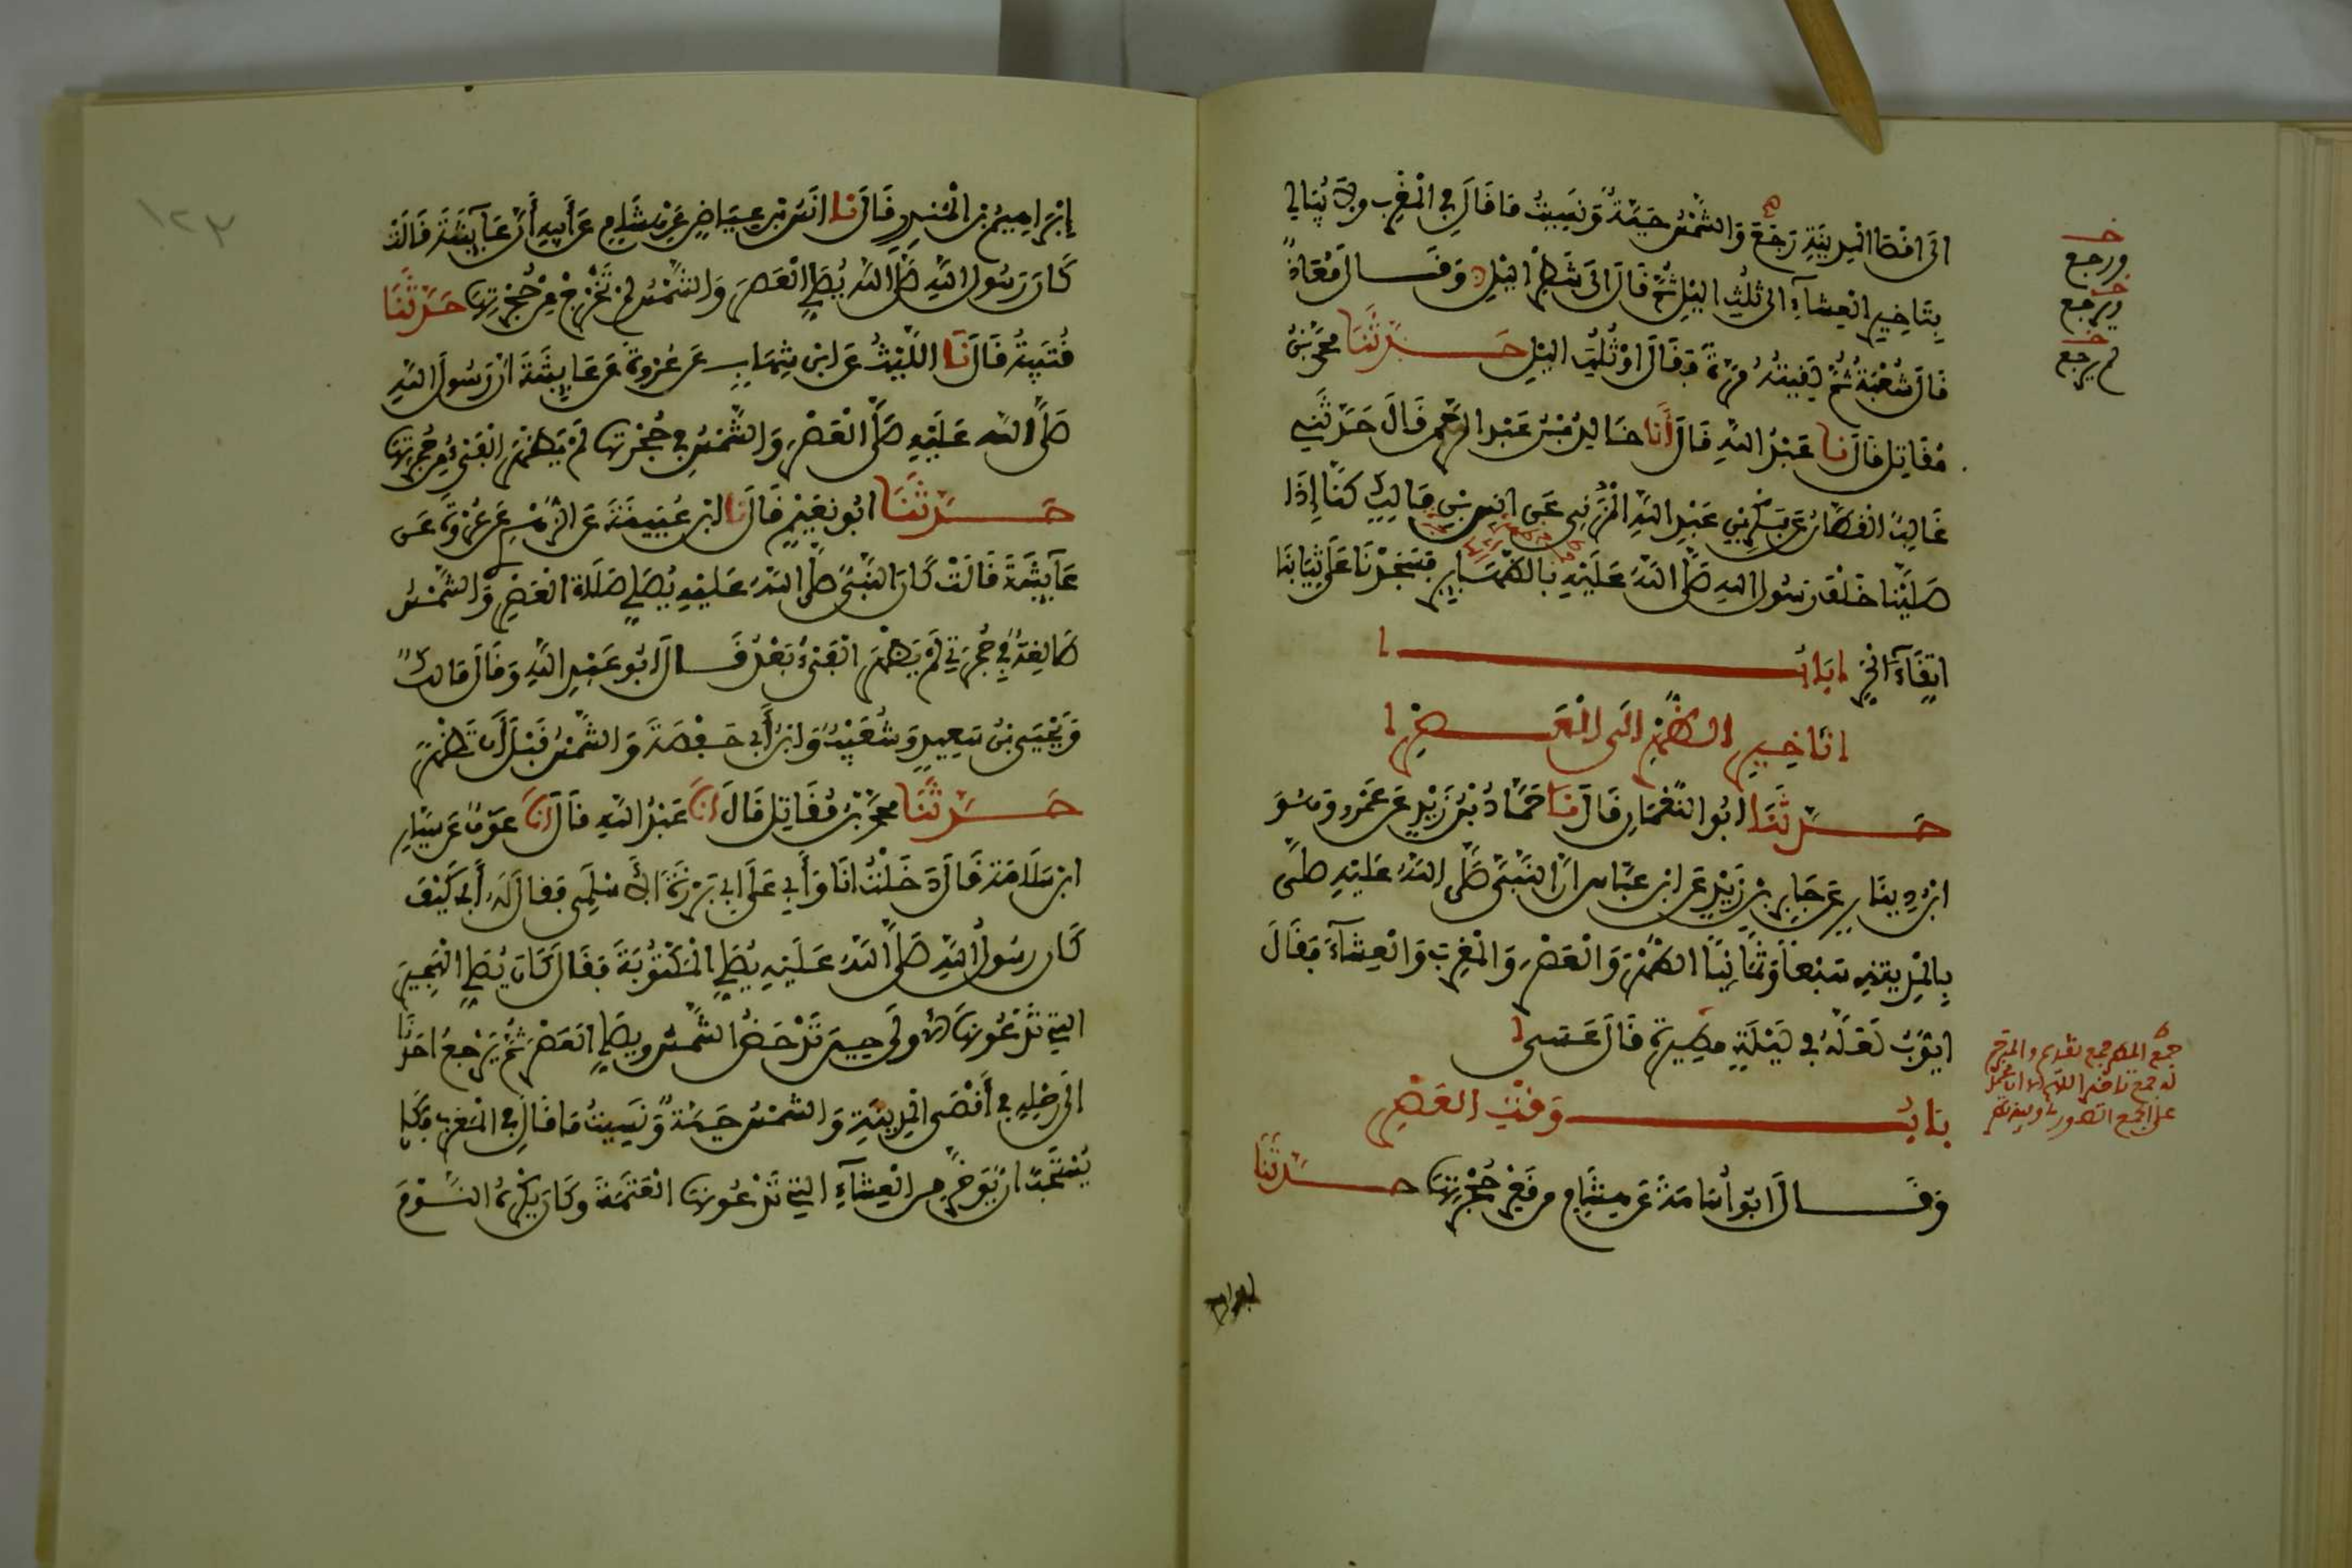 الى اقصا المدينة رجع والشمس حية ونسيت ما قال في المغرب ولا يبالي
بتاخير العشاء الى ثلث اليل ثم قال الى شطر اليل وقال معاذ
قال شعبة ثم لقيته مرة فقال او ثلث اليل حدثنا محمد بن
مقاتل قال نا عبد الله قال أنا خالد بن عبد الرحمن قال حدثني
غالب القطان عن بكر بن عبد الله المزني عن انس بن مالك كنا إذا
صلينا خلف رسول الله صلى الله عليه بالظهائر فسجدنا على ثيابنا
اتقاء الحر باب
تاخير الظهر الى العصر
حدثنا ابو النعمان قال نا حماد بن زيد عن عمرو وهو
ابن دينار عن جابر بن زيد عن ابن عباس ان النبي صلى الله عليه صلى
بالمدينة سبعا وثمانيا الظهر والعصر والمغرب والعشاء فقال
ايوب لعله في ليلة مطيرة قال عسى
باب وقت العصر
وقال ابو أسامة عن هشام من قعر حجرتها حدثنا
ورجع
ويرجع
ثم يرجع
ابراهيم
١٢٣
إبراهيم بن المنذر قال نا انس بن عياض عن هشام عن أبيه أن عايشة قالت
كان رسول الله صلى الله يصلي العصر والشمس لم تخرج من حجرتها حدثنا
قتيبة قال نا الليث عن ابن شهاب عن عروة عن عايشة ان رسول الله
صلى الله عليه صلى العصر والشمس في حجرتها لم يظهر الفيء من حجرتها
حدثنا ابو نعيم قال نا ابن عيينة عن الزهري عن عروة عن
عايشة قالت كان النبي صلى الله عليه يصلي صلاة العصر والشمس
طالعة في حجرتي لم يظهر الفيء بعد قال ابو عبد الله وقال مالك
ويحيى بن سعيد وشعيب وابن أبي حفصة والشمس قبل أن تظهر
حدثنا محمد بن مقاتل قال انا عبد الله قال انا عوف عن سيار
ابن سلامة قال دخلت انا وأبي على ابي برزة الأسلمي فقال له أبي كيف
كان رسول الله صلى الله عليه يصلي المكتوبة فقال كان يصلي الهجير
التي تدعونها الأولى حين تدحض الشمس ويصلي العصر ثم يرجع احدنا
الى رحله في أقصى المدينة والشمس حية ونسيت ما قال في المغرب وكان
يستحب ان يؤخر من العشاء التي تدعونها العتمة وكان يكره النوم